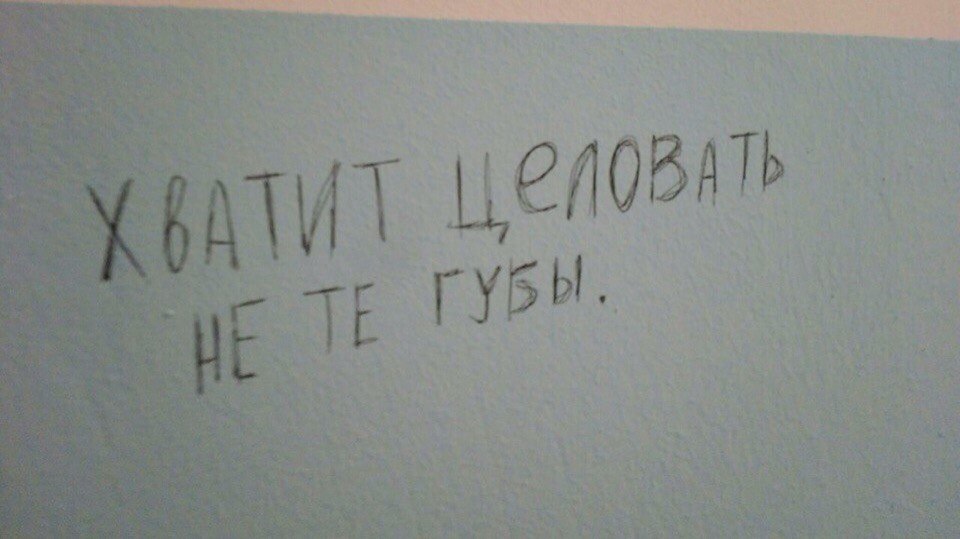 ХВАТИТ ЦеЛОВАТЬ
НЕ ТЕ ГУБЫ.